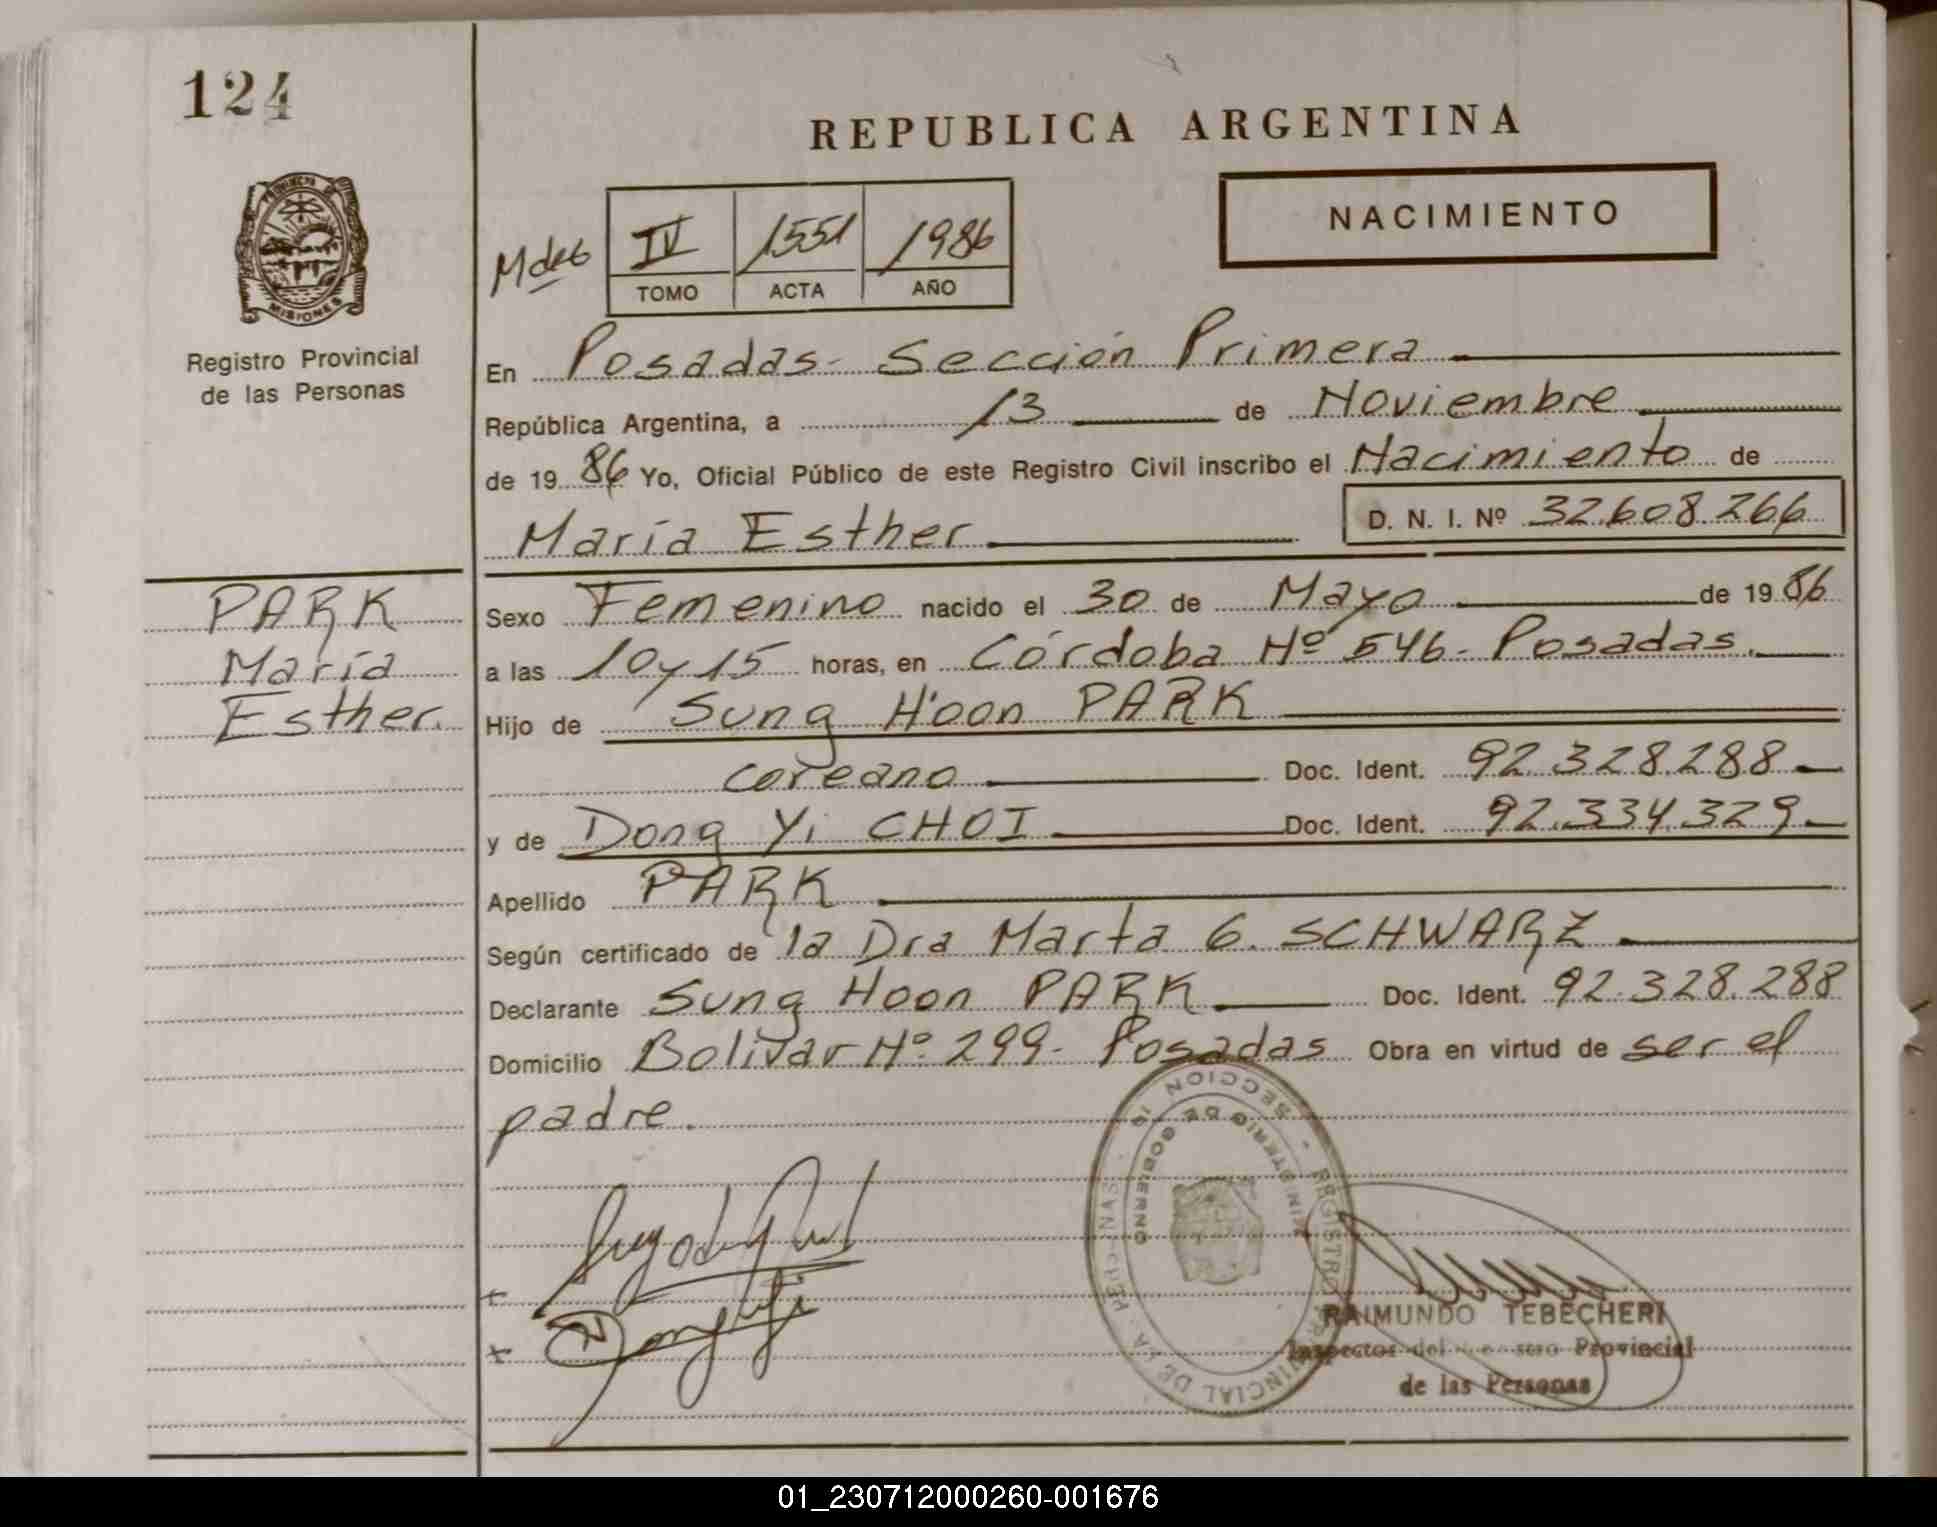 124
REPUBLICA ARGENTINA
NACIMIENTO
PROVINCIA DE
MISIONES
Registro Provincial
de las Personas
IV 1551 1986
TOMO ACTA AÑO
En Posadas - Sección Primera
República Argentina, a 13 de Noviembre
de 1986 Yo, Oficial Público de este Registro Civil inscribo el Nacimiento de
María Esther D. N. I. Nº 32.608.266
PARK
María
Esther.
Sexo Femenino nacido el 30 de Mayo de 1986
a las 10 y 15 horas, en Córdoba Nº 546 - Posadas.
Hijo de Sung Hoon PARK
coreano Doc. Ident. 92.328.288
y de Dong Yi CHOI Doc. Ident. 92.334.329
Apellido PARK
Según certificado de la Dra Marta G. SCHWARZ
Declarante Sung Hoon PARK Doc. Ident. 92.328.288
Domicilio Bolívar Nº 299 - Posadas Obra en virtud de ser el
padre.
SECCION
MINISTERIO DE GOBIERNO
REGISTRO PROVINCIAL DE LAS PERSONAS
RAIMUNDO TEBECHERI
Inspector del Registro Provincial
de las Personas
01_230712000260-001676